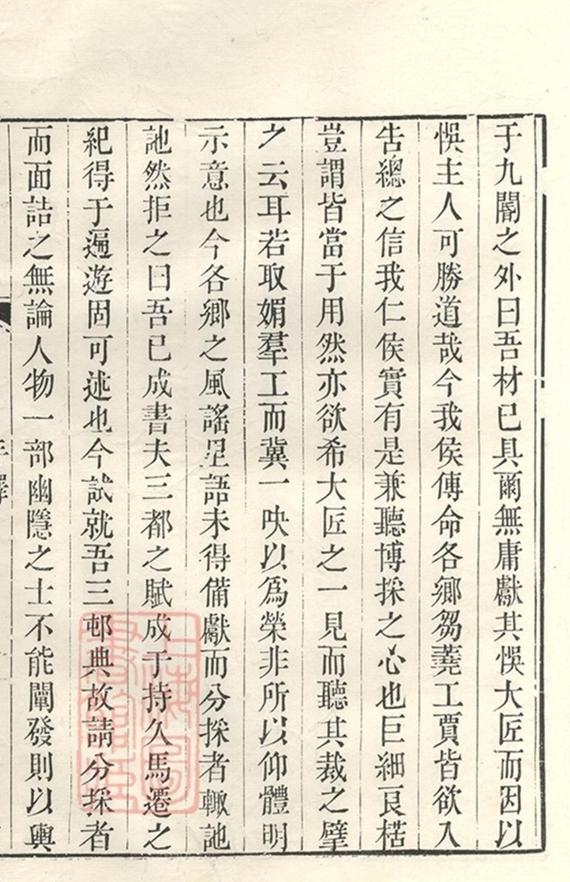 于九閽之外曰吾材已具爾無庸獻其悞大匠而因以
悞主人可勝道哉今我侯傳命各鄉芻蕘工賈皆欲入
告總之信我仁侯實有是兼聽博採之心也巨細良楛
豈謂皆當于用然亦欲希大匠之一見而聽其裁之擘
之云耳若取媚羣工而冀一吷以為榮非所以仰體明
示意也今各鄉之風謠里語未得備獻而分採者輙訑
訑然拒之曰吾已成書夫三都之賦成于持久馬遷之
紀得于遍遊固可述也今試就吾三邨典故請分採者
而面詰之無論人物一部幽隱之士不能闡發則以輿